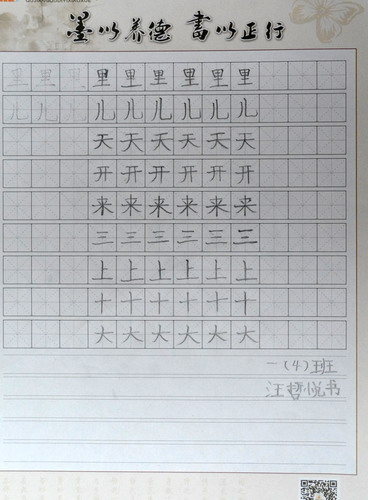 墨以养德 書以正行
里里里里里里里里里
儿儿儿儿儿儿儿儿儿
天天天天天天
开开开开开开
来来来来来来
三三三三三三
上上上上上上
十十十十十十
大大大大大大
一(4)班
汪哲悦书